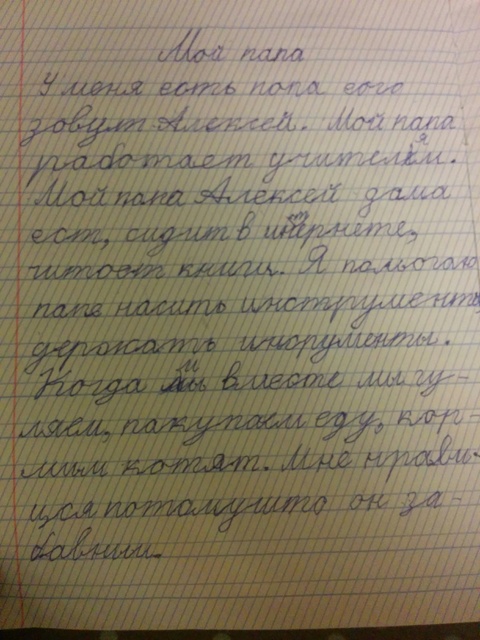 Мой папа
У меня есть попа еого
зовут Алексей. Мой папа
работает учителем.
Мой папа Алексей дома
ест, сидит в интернете,
читоет книги. Я памогаю
папе насить инструменты,
держать инсрументы.
Когда мы вместе мы гу-
ляем, пакупаем еду, кор-
мим котят. Мне нрави-
цся потомушто он за-
бавний.